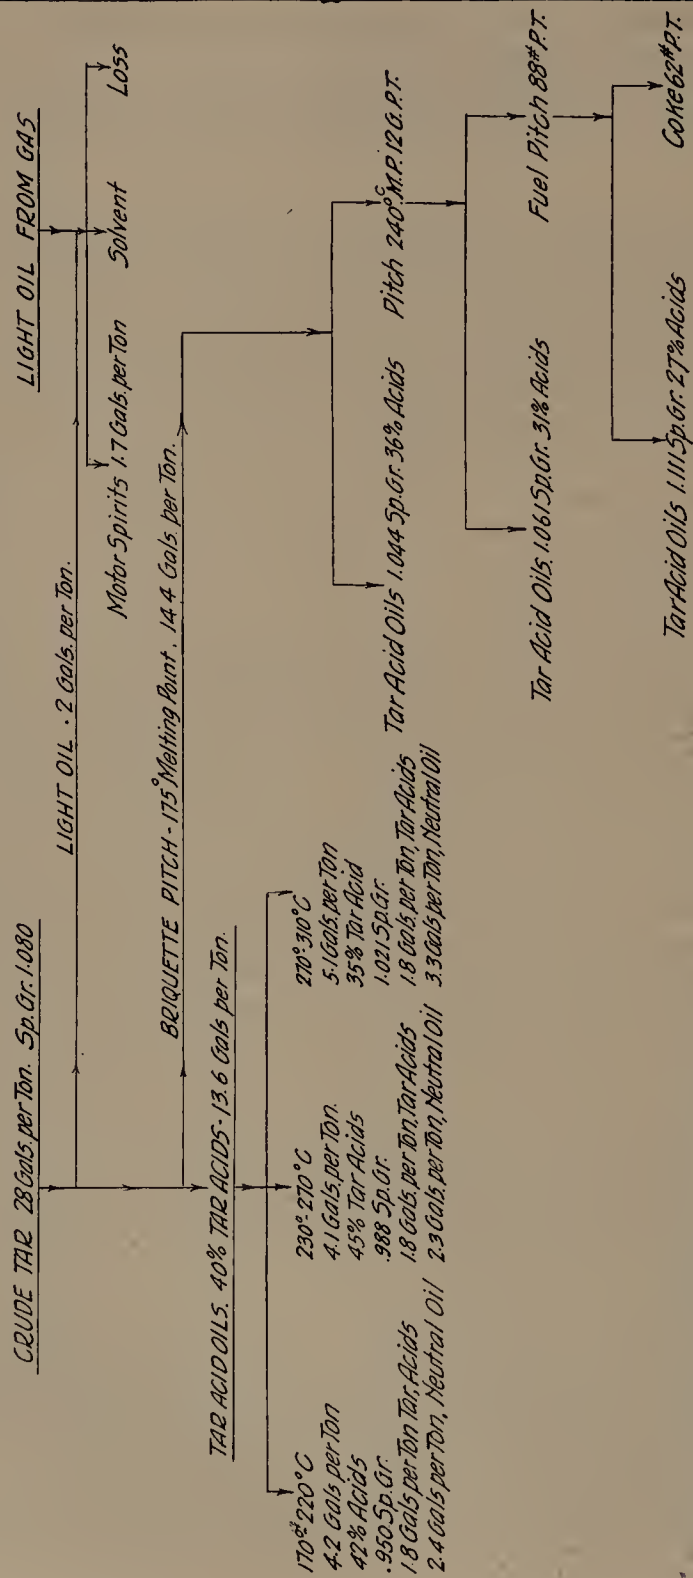 CRUDE TAR 28 Gals. per Ton. Sp. Gr. 1.080
LIGHT OIL FROM GAS
LIGHT OIL · 2 Gals. per Ton.
Motor Spirits 1.7 Gals. per Ton
Solvent
Loss
BRIQUETTE PITCH - 175° Melting Point. 14.4 Gals. per Ton.
TAR ACID OILS. 40% TAR ACIDS - 13.6 Gals per Ton.
170° 220°C
4.2 Gals per Ton
42% Acids
.950 Sp. Gr.
1.8 Gals per Ton Tar, Acids
2.4 Gals per Ton, Neutral Oil
230°-270°C
4.1 Gals, per Ton.
45% Tar Acids
.988 Sp. Gr.
1.8 Gals per Ton, Tar Acids
2.3 Gals per Ton, Neutral Oil
270°-310°C
5.1 Gals, per Ton
35% Tar Acid
1.021 Sp. Gr.
1.8 Gals per Ton, Tar Acids
3.3 Gals per Ton, Neutral Oil
Tar Acid Oils 1.044 Sp. Gr. 36% Acids
Pitch 240°C M.P. 12 G.P.T.
Tar Acid Oils, 1.061 Sp. Gr. 31% Acids
Fuel Pitch 88# P.T.
Tar Acid Oils 1.111 Sp. Gr. 27% Acids
Coke 62# P.T.